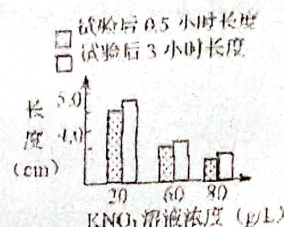 试验后 0.5 小时长度
试验后 3 小时长度
长度
(cm)
5.0
4.0
20 60 80
KNO₃溶液浓度（g/L）